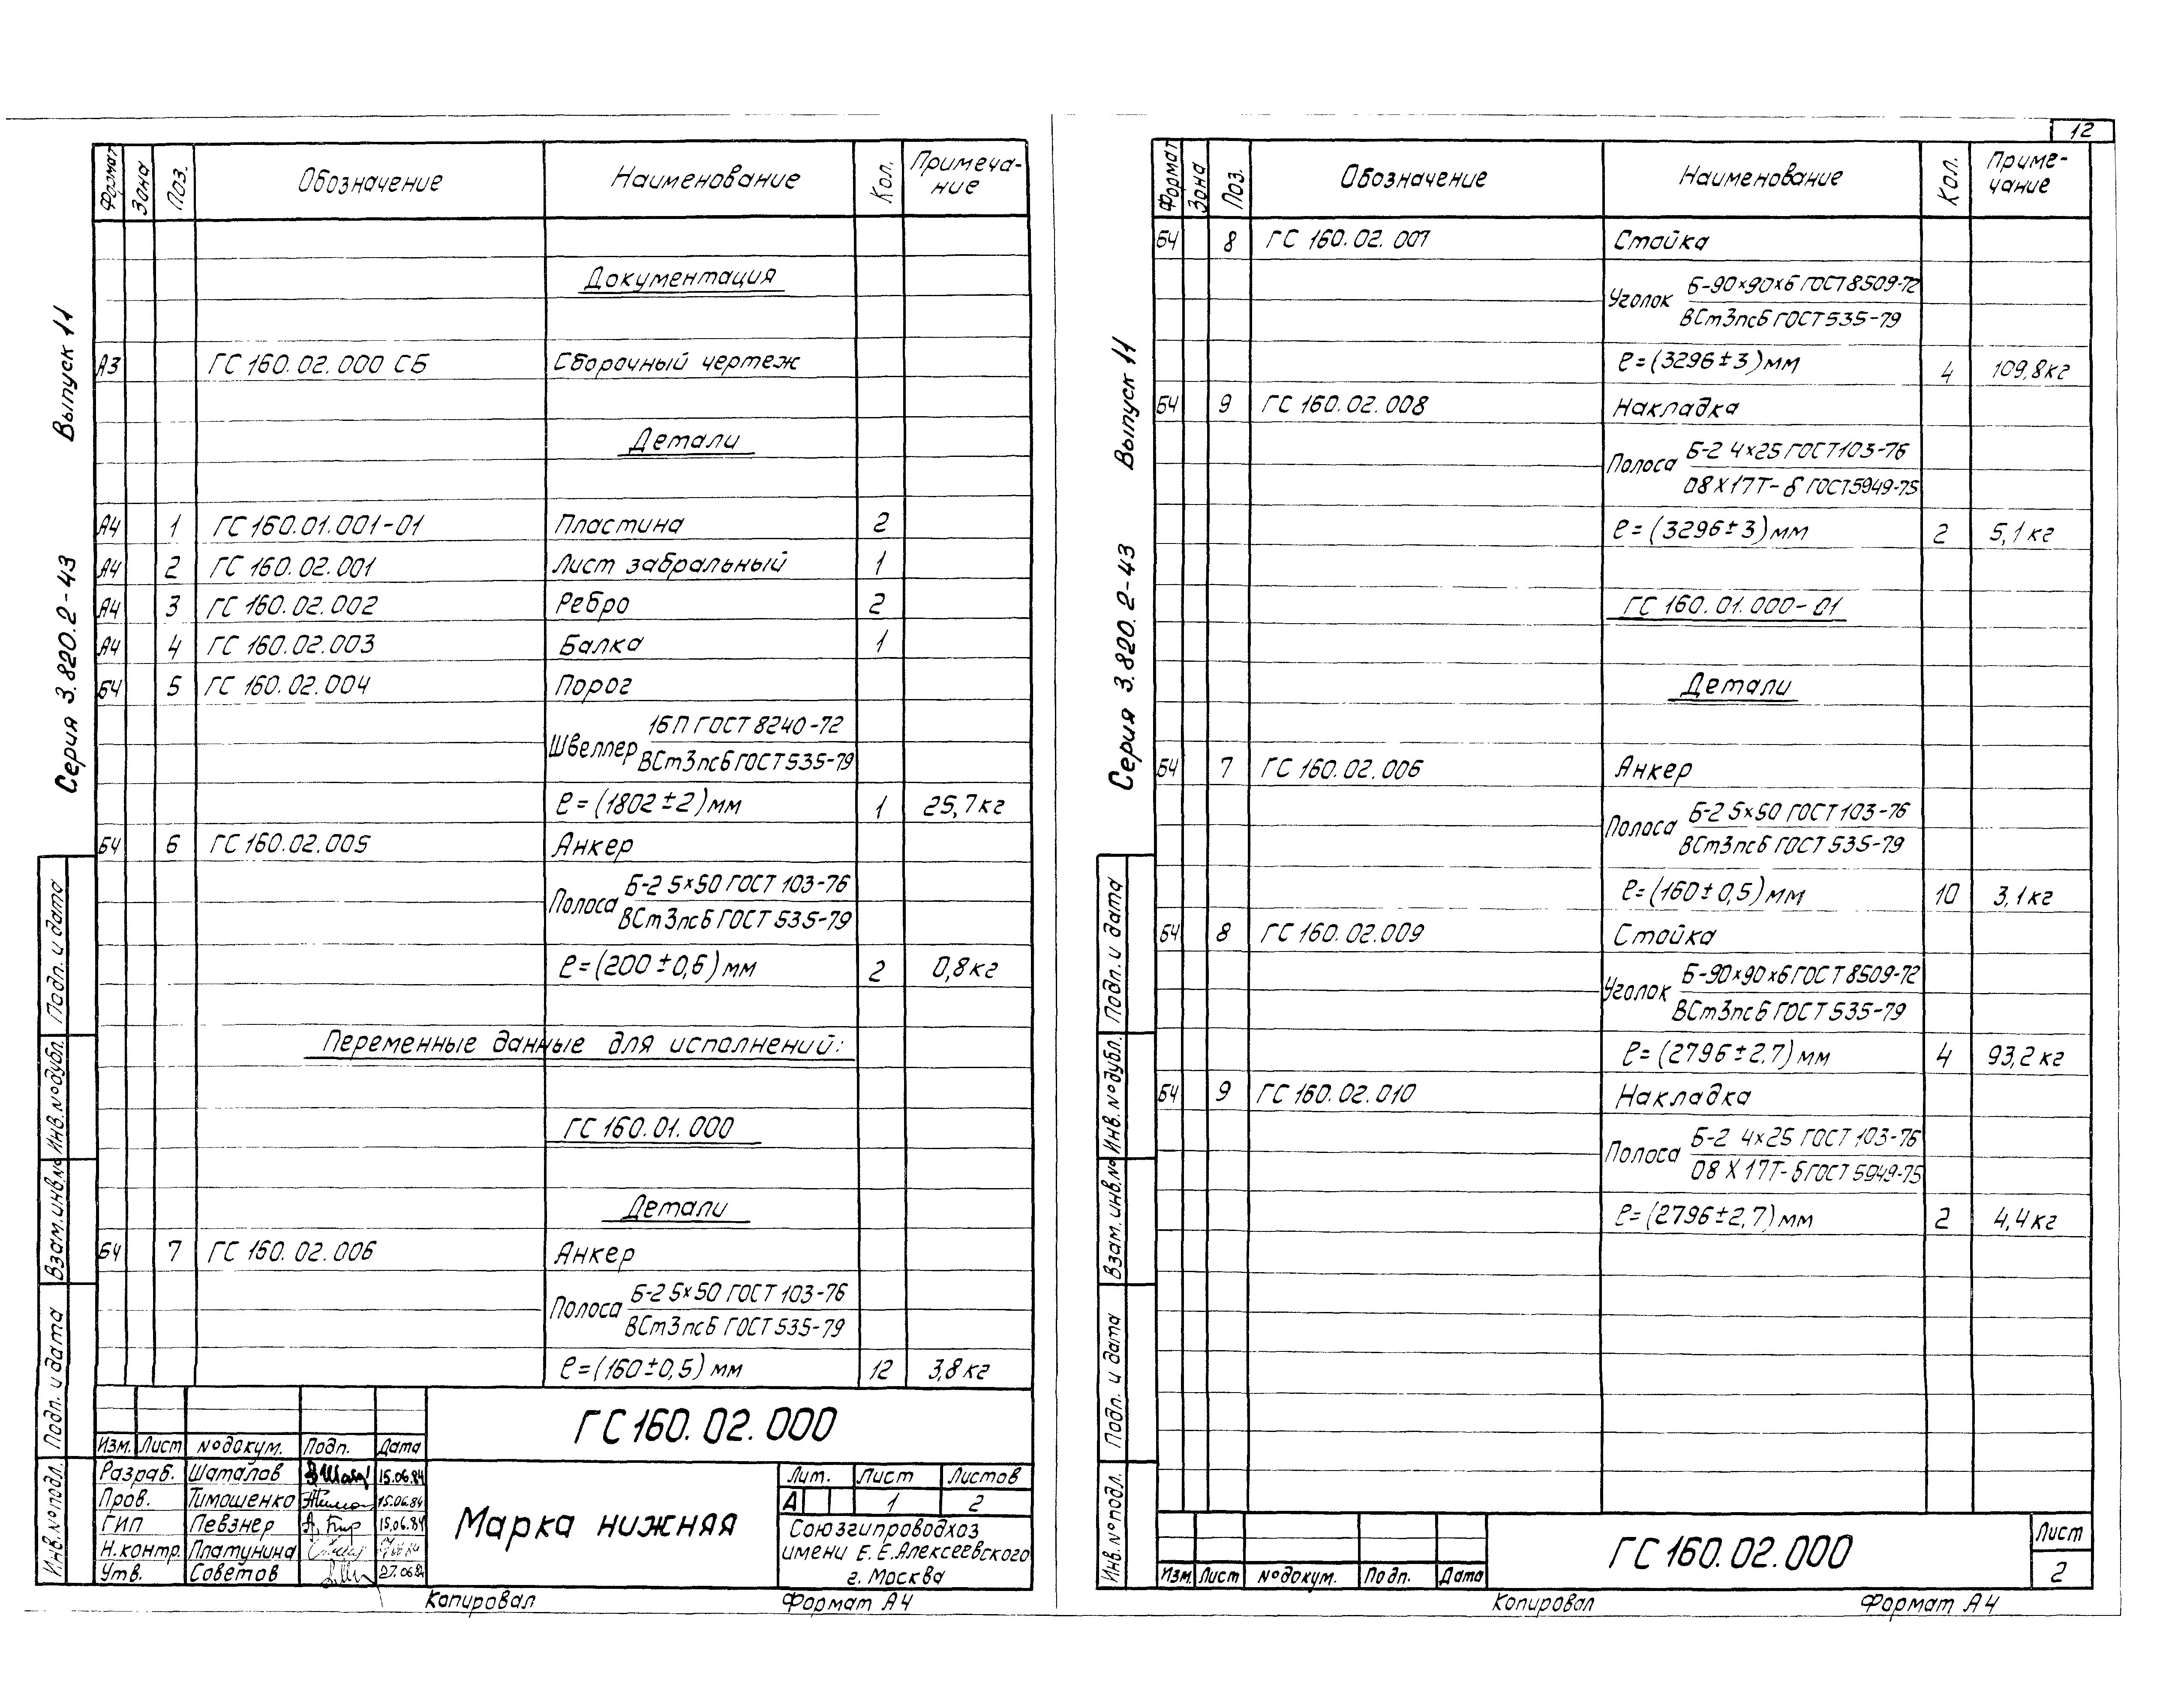 12
Формат Зона Поз. Обозначение Наименование Кол. Примеча-
ние
Документация
А3 ГС 160.02.000 СБ Сборочный чертеж
Детали
А4 1 ГС 160.01.001-01 Пластина 2
А4 2 ГС 160.02.001 Лист забральный 1
А4 3 ГС 160.02.002 Ребро 2
А4 4 ГС 160.02.003 Балка 1
БЧ 5 ГС 160.02.004 Порог
16П ГОСТ 8240-72
Швеллер
ВСт3пс6 ГОСТ 535-79
ℓ=(1802±2)мм 1 25,7кг
БЧ 6 ГС 160.02.005 Анкер
Б-2 5×50 ГОСТ 103-76
Полоса
ВСт3пс6 ГОСТ 535-79
ℓ=(200±0,6)мм 2 0,8кг
Переменные данные для исполнений:
ГС 160.01.000
Детали
БЧ 7 ГС 160.02.006 Анкер
Б-2 5×50 ГОСТ 103-76
Полоса
ВСт3пс6 ГОСТ 535-79
ℓ=(160±0,5)мм 12 3,8кг
Выпуск 11
Серия 3.820.2-43
Подп. и дата
Инв.№дубл.
Взам.инв.№
Подп. и дата
Инв.№подл.
ГС160.02.000
Изм. Лист №докум. Подп. Дата
Разраб. Шаталов 15.06.84
Пров. Тимошенко 15.06.84
ГИП Певзнер 15.06.84
Н.контр. Платунина
Утв. Советов 27.06.84
Марка нижняя
Лит. Лист Листов
А 1 2
Союзгипроводхоз
имени Е.Е.Алексеевского
г. Москва
Копировал Формат А4
Формат Зона Поз. Обозначение Наименование Кол. Приме-
чание
БЧ 8 ГС 160.02.007 Стойка
Б-90×90×6 ГОСТ 8509-72
Уголок
ВСт3пс6 ГОСТ 535-79
ℓ=(3296±3)мм 4 109,8кг
БЧ 9 ГС 160.02.008 Накладка
Б-2 4×25 ГОСТ 103-76
Полоса
08Х17Т-б ГОСТ 5949-75
ℓ=(3296±3)мм 2 5,1кг
ГС 160.01.000-01
Детали
БЧ 7 ГС 160.02.006 Анкер
Б-2 5×50 ГОСТ 103-76
Полоса
ВСт3пс6 ГОСТ 535-79
ℓ=(160±0,5)мм 10 3,1кг
БЧ 8 ГС 160.02.009 Стойка
Б-90×90×6 ГОСТ 8509-72
Уголок
ВСт3пс6 ГОСТ 535-79
ℓ=(2796±2,7)мм 4 93,2кг
БЧ 9 ГС 160.02.010 Накладка
Б-2 4×25 ГОСТ 103-76
Полоса
08Х17Т-б ГОСТ 5949-75
ℓ=(2796±2,7)мм 2 4,4кг
Выпуск 11
Серия 3.820.2-43
Подп. и дата
Инв.№дубл.
Взам.инв.№
Подп. и дата
Инв.№подл.
Изм. Лист №докум. Подп. Дата
ГС160.02.000
Лист
2
Копировал Формат А4